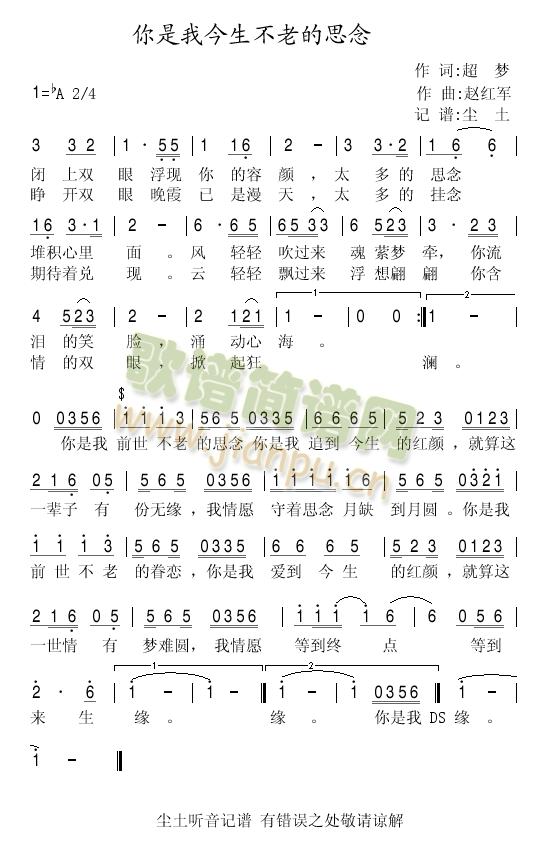 你是我今生不老的思念
作 词:超 梦
1=♭A 2/4
作 曲:赵红军
记 谱:尘 土
3 3 2 | 1 · 5 5 | 1 1 6 | 2 - | 3 3 · 2 | 1 6 6 |
闭 上双 眼 浮现 你 的容 颜 ，太 多的 思念
睁 开双 眼 晚霞 已 是漫 天 ，太 多的 挂念
1 6 3 · 1 | 2 - | 6 · 6 5 | 6 5 3 3 | 6 5 2 3 | 3 · 2 3 |
堆积心里 面 。风 轻轻 吹过来 魂 萦梦 牵， 你流
期待着兑 现 。云 轻轻 飘过来 浮 想翩 翩 你含
4 5 2 3 | 2 - | 2 1 2 1 | 1 - | 0 0 :| 2 -
泪 的笑 脸 ，涌 动心 海 。
情 的双 眼 ，掀 起狂 澜 。
0 0 3 5 6 | i i i 3 | 5 6 5 0 3 3 5 | 6 6 6 5 | 5 2 3 0 1 2 3 |
你是我 前世 不老 的思念 你是我 追到 今生 的红颜 ，就算这
2 1 6 0 5 | 5 6 5 0 3 5 6 | i i i i i | 5 6 5 0 3 2 1 |
一辈子 有 份无缘 ，我情愿 守着思念 月缺 到月圆 。你是我
i i i 3 | 5 6 5 0 3 5 6 | 6 6 6 5 | 5 2 3 0 1 2 3 |
前 世 不 老 的眷恋 ，你是我 爱到 今 生 的红颜 ，就算这
2 1 6 0 5 | 5 6 5 0 3 5 6 | i i i i 6 | 6 0 5 6 |
一世情 有 梦难圆 ，我情愿 等到终 点 等到
2 · 6 | i - | i - | i - | i - | i 0 3 5 6 | i -
来 生 缘 。 缘 。 你是我 DS 缘 。
i - ‖
歌谱简谱网
www.jianpu.cn
尘土听音记谱 有错误之处敬请谅解